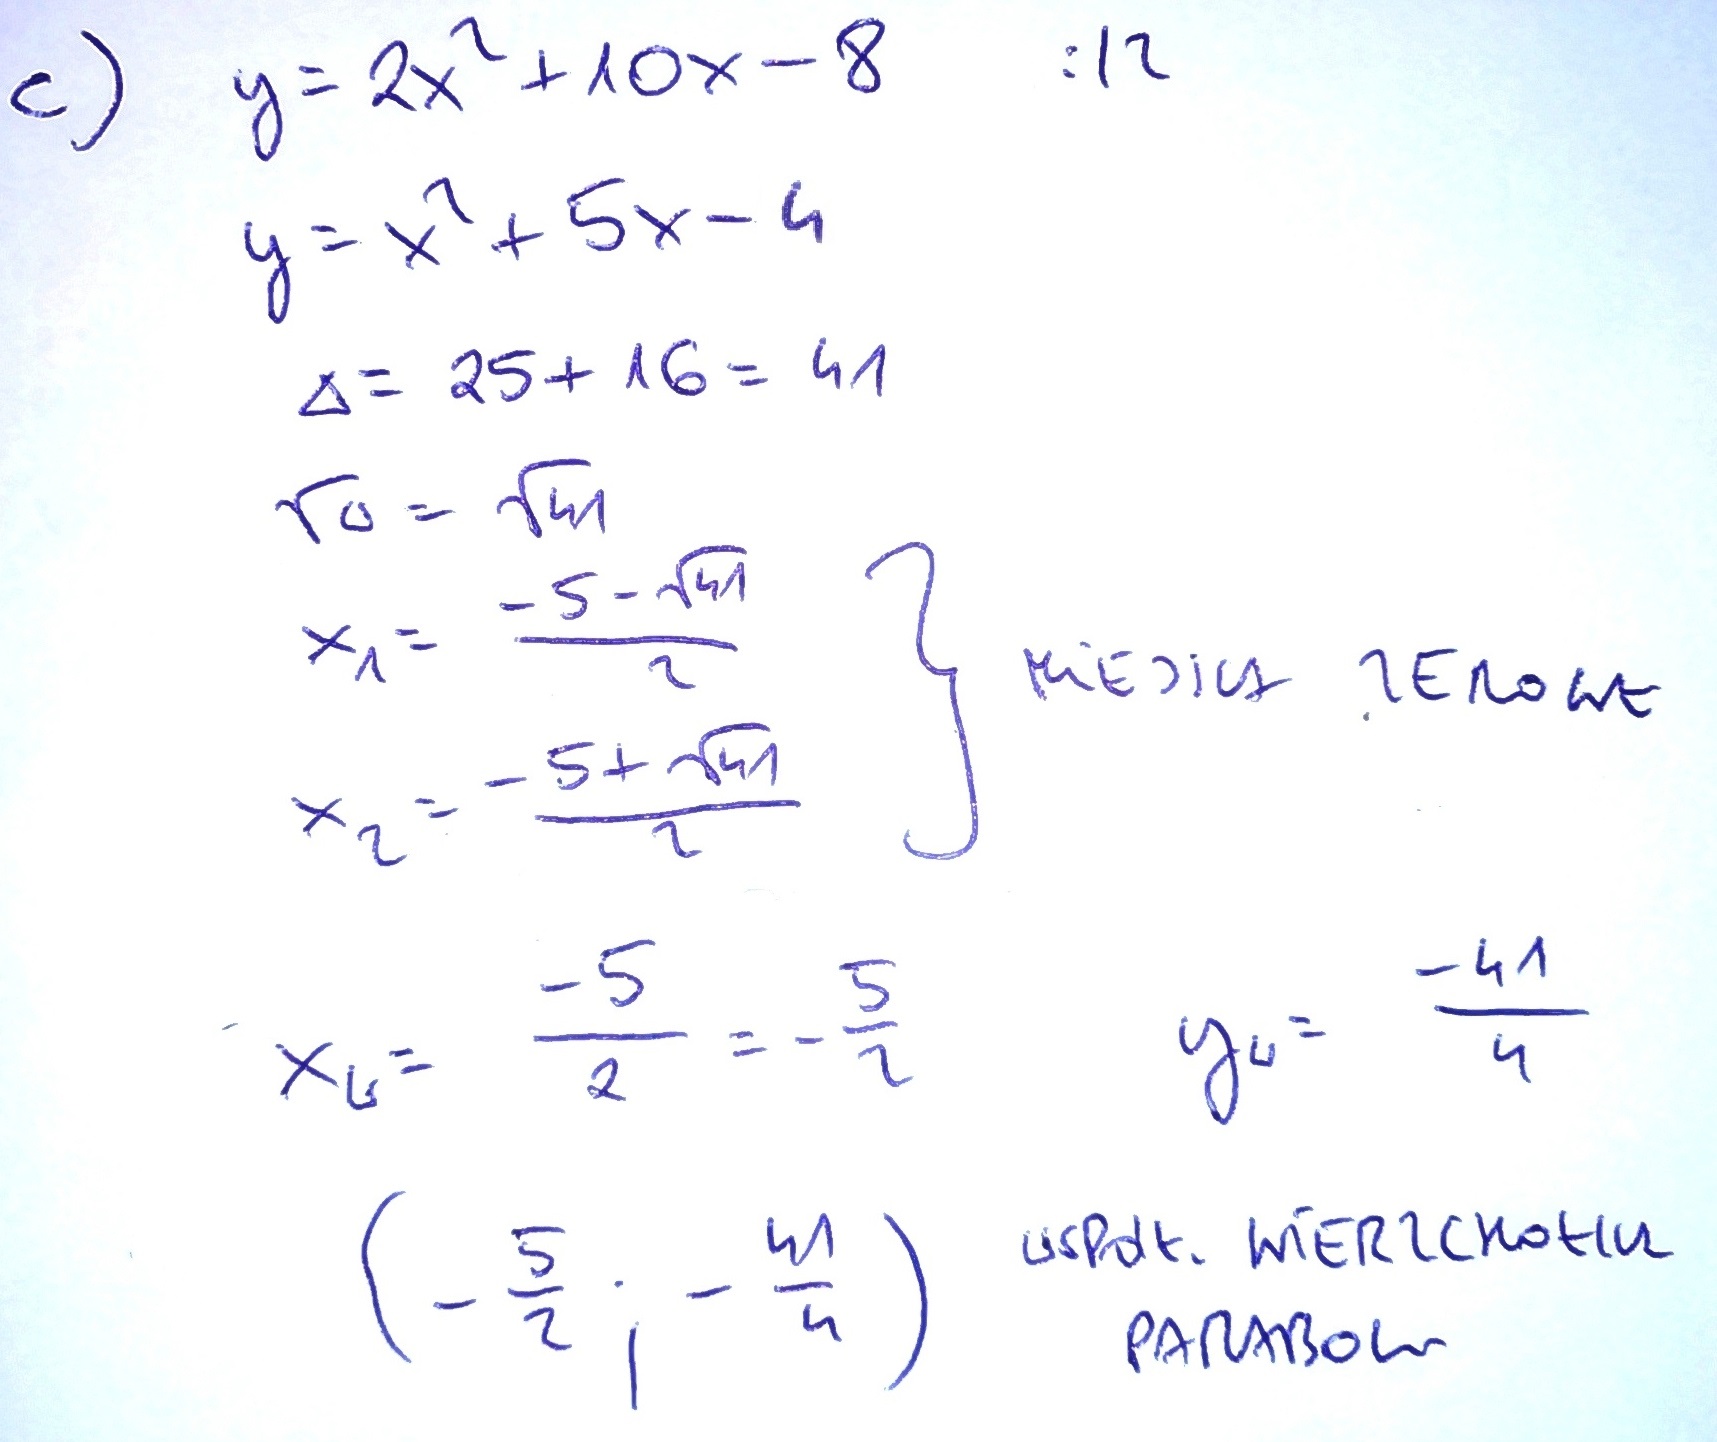 c) y = 2x² + 10x - 8 :|2
y = x² + 5x - 4
Δ = 25 + 16 = 41
√Δ = √41
x₁ = (-5 - √41)/2
x₂ = (-5 + √41)/2
} MIEJSCA ZEROWE
x_w = -5/2 = -5/2 y_w = -41/4
(-5/2 ; -41/4) WSPÓŁ. WIERZCHOŁKA
PARABOLI